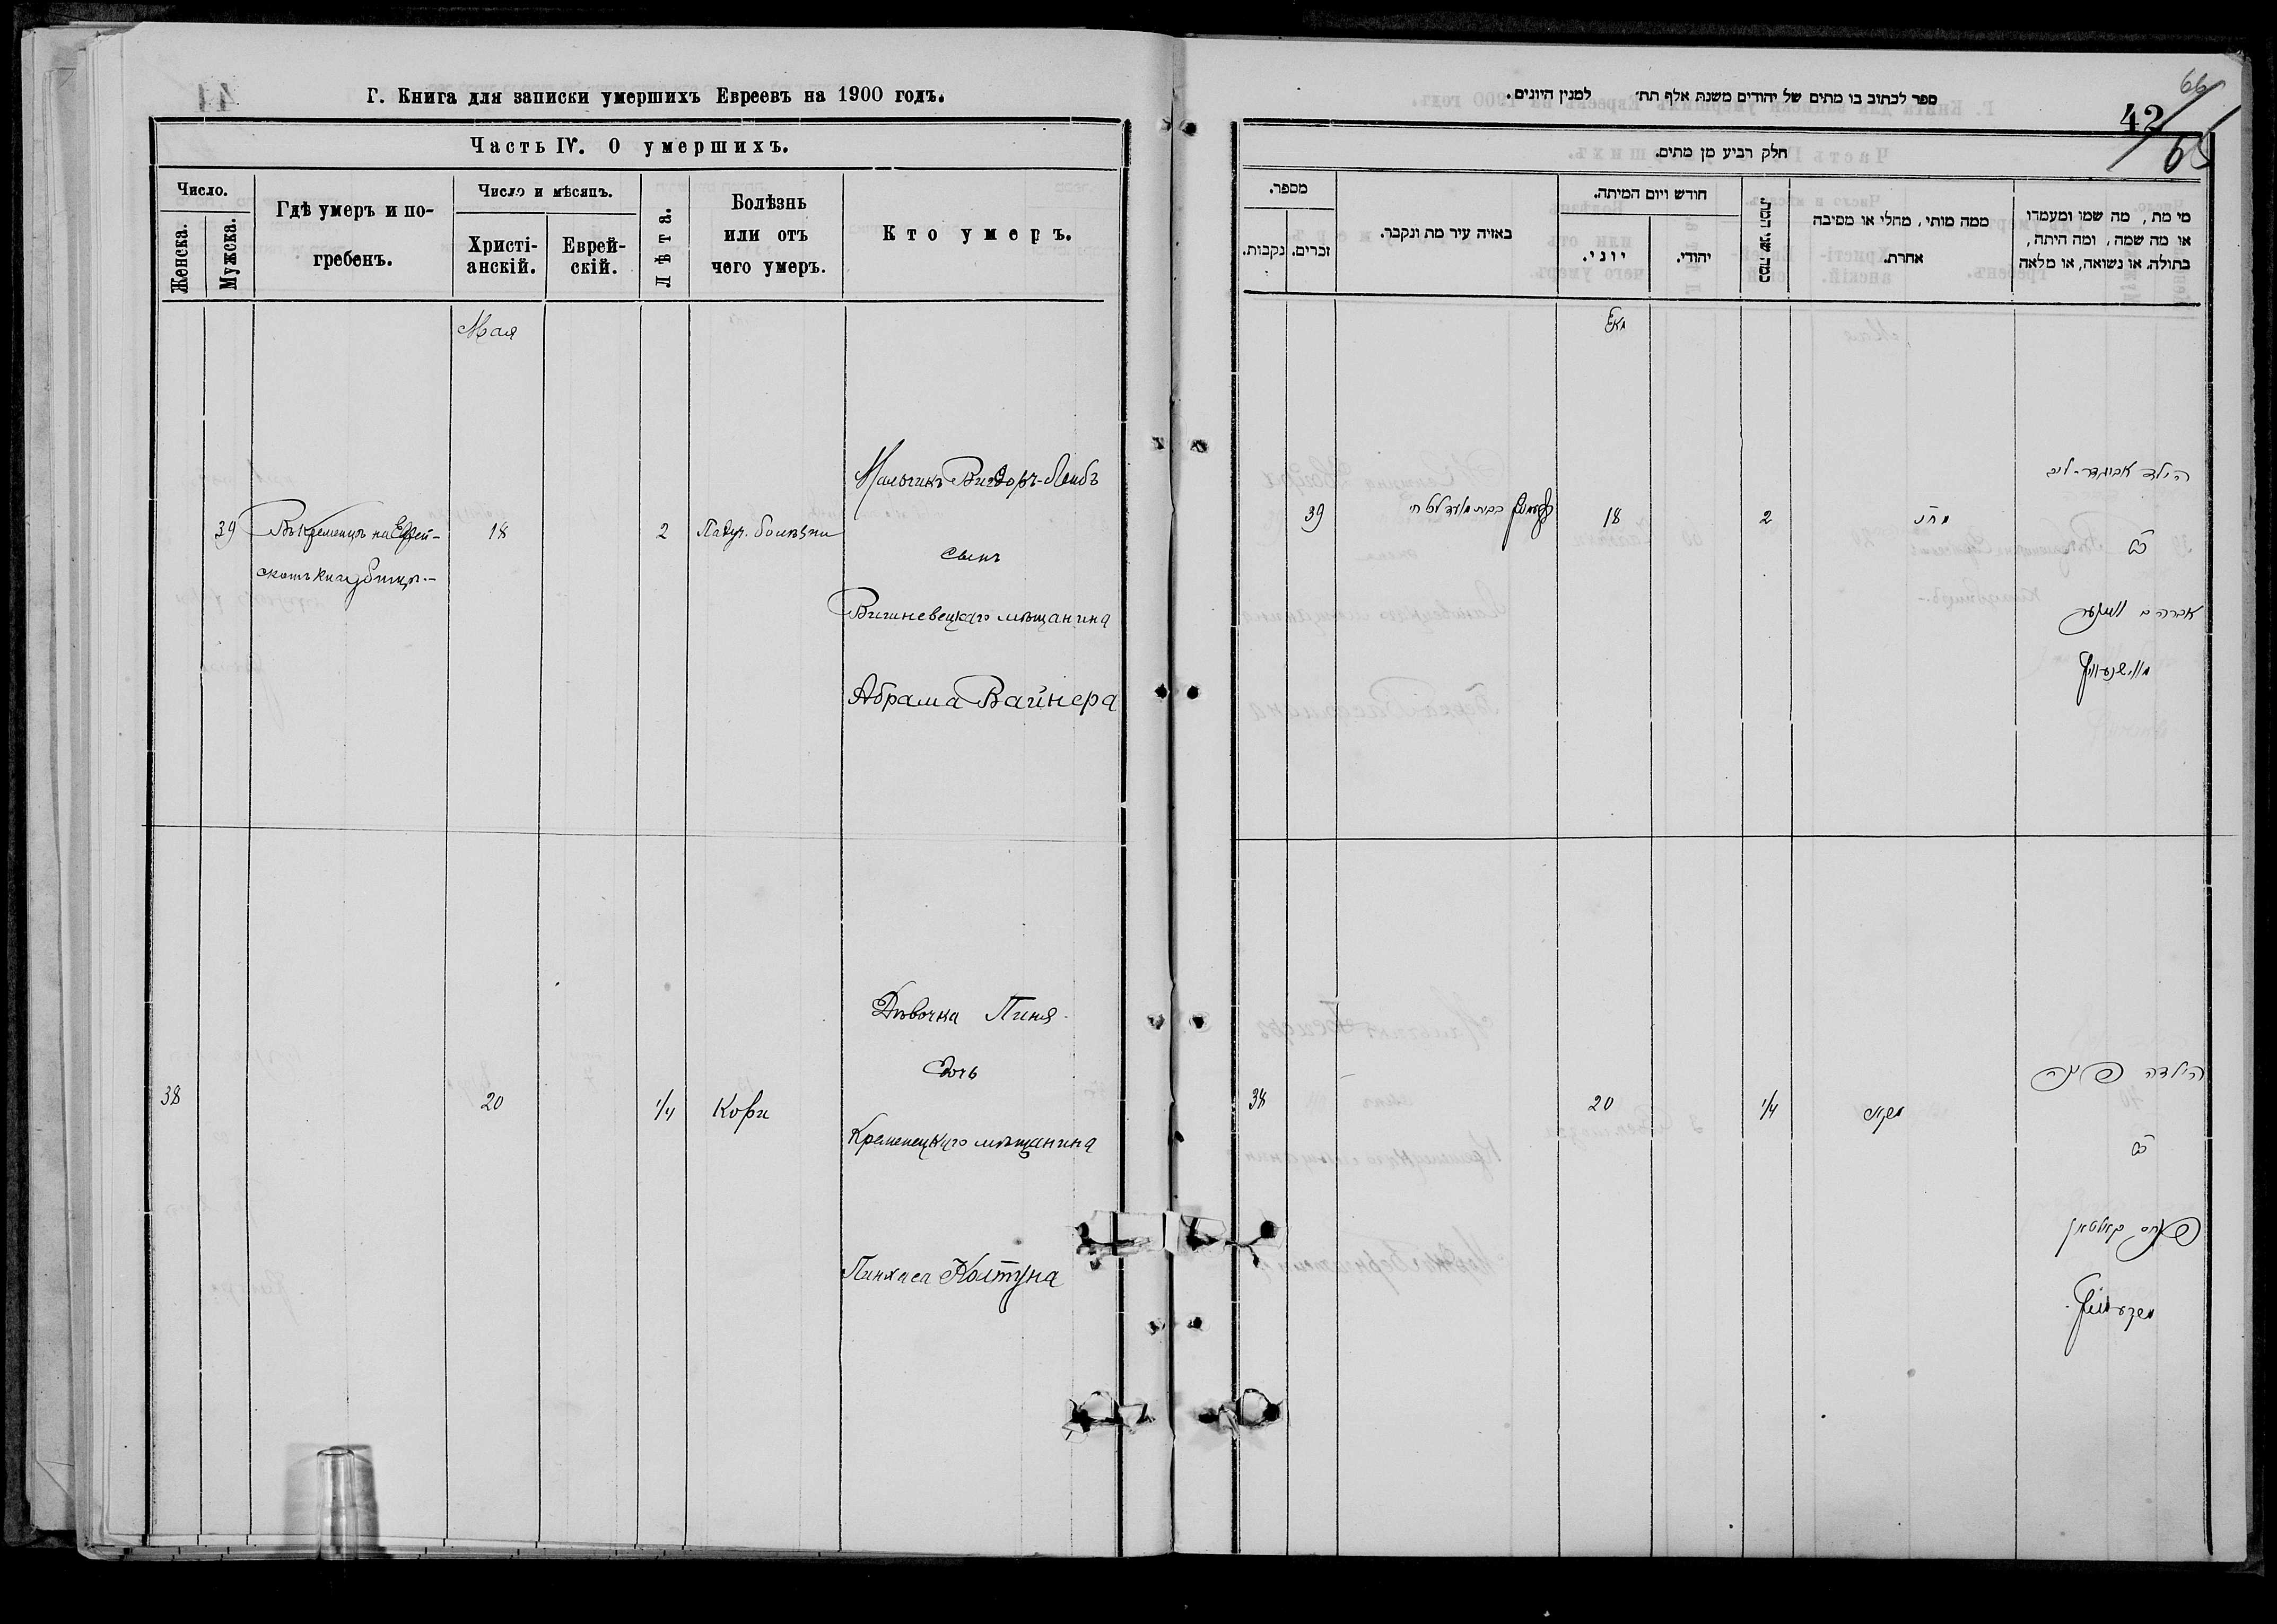 Г. Книга для записки умершихъ Евреевъ на 1900 годъ.
Часть IV. О умершихъ.
Число.
Женска.
Мужска.
Гдѣ умеръ и по-
гребенъ.
Число и мѣсяцъ.
Христі-
анскій.
Еврей-
скій.
Лѣта.
Болѣзнь
или отъ
чего умеръ.
Кто умеръ.
Мая
39
Въ Кременцѣ на Еврей-
скомъ кладбищѣ.-
18
2
Падуч. болѣзни
Мальчикъ Вигдоръ-Лейбъ
сынъ
Вишневецкаго мѣщанина
Абрама Вайнера
38
20
1/4
Кори
Дѣвочка Пиня
дочь
Кременецкаго мѣщанина
Пинхаса Колтуна
ספר לכתוב בו מתים של יהודים משנת אלף תת׳ למנין היונים.
66
42
65
חלק רביע מן מתים.
מספר.
נקבות.
זכרים.
באיזה עיר מת ונקבר.
חודש ויום המיתה.
יוני.
יהודי.
כמה שני המת.
ממה מותי, מחלי או מסיבה
אחרת.
מי מת, מה שמו ומעמדו
או מה שמה, ומה היתה,
בתולה, או נשואה, או מלאה
מאי
39
18
2
הילד אביגדר-ליב
אברהם ווײנער
38
20
1/4
הילדה פיניה
פנחס קאלטאן